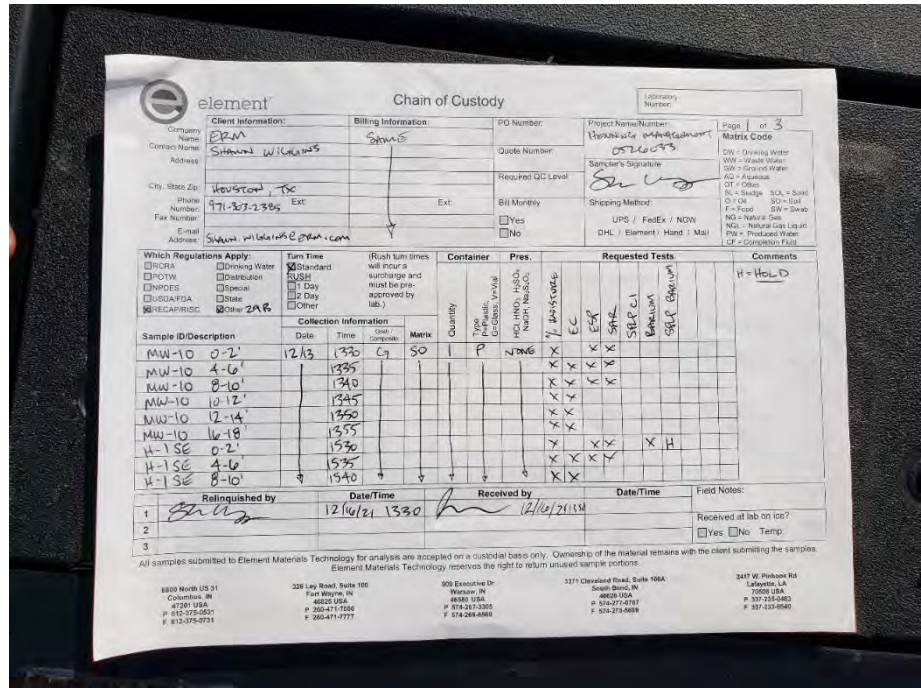 element
Chain of Custody
Laboratory Number:
Client Information:
Billing Information:
PO Number:
Project Name/Number:
Page 1 of 3
Company Name: ERM
SAME
HENNING MANAGEMENT
0526033
Contact Name: SHAWN WIGGINS
Quote Number
Sampler's Signature
Address
Required QC Level
City, State Zip: HOUSTON, TX
Phone Number: 971-303-2385 Ext:
Ext:
Bill Monthly
Yes
No
Shipping Method:
UPS / FedEx / NOW
DHL / Element / Hand / Mail
Fax Number:
E-mail Address: SHAWN.WIGGINS@ERM.COM
Matrix Code
DW = Drinking Water
WW = Waste Water
GW = Ground Water
AQ = Aqueous
OT = Other
SL = Sludge SOL = Solid
O = Oil SO = Soil
F = Food SW = Swab
NG = Natural Gas
NGL = Natural Gas Liquid
PW = Produced Water
CF = Completion Fluid
Which Regulations Apply:
RCRA Drinking Water
POTW Distribution
NPDES Special
USDA/FDA State
RECAP/RISC Other 29B
Turn Time
Standard
RUSH
1 Day
2 Day
Other
(Rush turn times will incur a surcharge and must be pre-approved by lab.)
Container
Pres.
Requested Tests
Comments
H = HOLD
Collection Information
Sample ID/Description Date Time Grab / Composite Matrix Quantity Type P=Plastic, G=Glass, V=Vial HCl, HNO3, H2SO4, NaOH, Na2S2O3 % MOISTURE EC ESP SAR SPLP Cl BARIUM SPLP BARIUM
MW-10 0-2' 12/13 1330 G SO 1 P NONE X X X
MW-10 4-6' 1335 X X X X
MW-10 8-10' 1340 X X X X
MW-10 10-12' 1345 X X
MW-10 12-14' 1350 X X
MW-10 16-18' 1355 X X
H-1 SE 0-2' 1530 X X X X H
H-1 SE 4-6' 1535 X X X X
H-1 SE 8-10' 1540 X X
Relinquished by Date/Time Received by Date/Time Field Notes:
1 12/16/21 1330 12/16/21
2
3
Received at lab on ice?
Yes No Temp:
All samples submitted to Element Materials Technology for analysis are accepted on a custodial basis only. Ownership of the material remains with the client submitting the samples.
Element Materials Technology reserves the right to return unused sample portions.
6800 North US 31
Columbus, IN
47201 USA
P 812-375-0531
F 812-375-0731
328 Ley Road, Suite 100
Fort Wayne, IN
46825 USA
P 260-471-7000
F 260-471-7777
909 Executive Dr
Warsaw, IN
46580 USA
P 574-267-3305
F 574-269-6569
3371 Cleveland Road, Suite 100A
South Bend, IN
46628 USA
P 574-277-0707
F 574-273-5699
2417 W. Pinhook Rd
Lafayette, LA
70508 USA
P 337-235-0483
F 337-233-6540